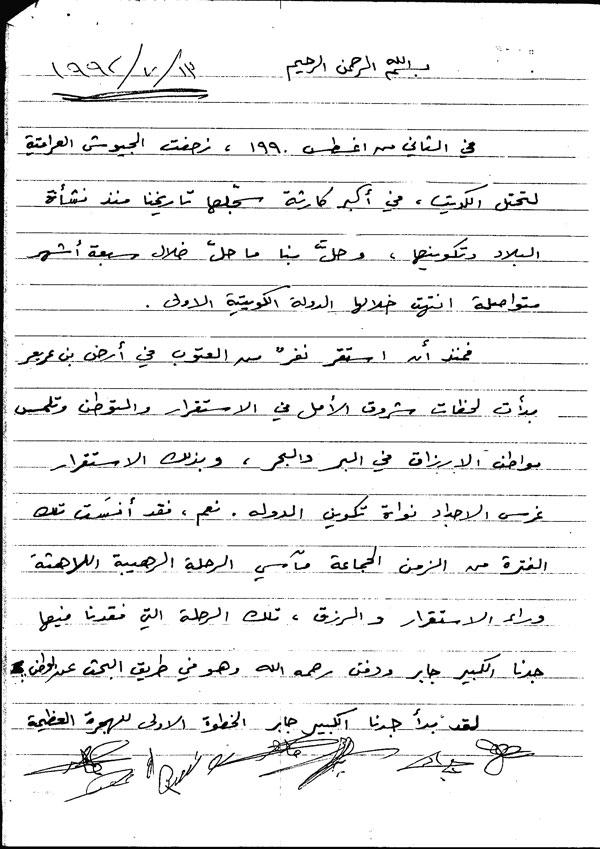 بسم الله الرحمن الرحيم
١٩٩٢/٧/١٣
في الثاني من اغسطس ١٩٩٠ ، زحفت الجيوش العراقية
لتحتل الكويت ، في أكبر كارثة سجّلها تاريخنا منذ نشأة
البلاد وتكوينها ، وحلَّ بنا ما حلّ خلال سبعة أشهر
متواصلة انتهت خلالها الدولة الكويتية الاولى .
فمنذ أن استقر نفرٌ من العتوب في أرض بن عريعر
بدأت لحظات شروق الأمل في الاستقرار والتوطن وتلمس
مواطن الارزاق في البر والبحر ، وبذلك الاستقرار
غرس الاجداد نواة تكوين الدوله . نعم ، فقد أنسَت تلك
الفترة من الزمن الجماعة مآسي الرحلة الرهيبة اللاهثة
وراء الاستقرار والرزق ، تلك الرحلة التي فقدنا فيها
جدنا الكبير جابر ودفن رحمه الله وهو في طريق البحث عن الوطن
لقد بدأ جدنا الكبير جابر الخطوة الاولى للهجرة العظيمة